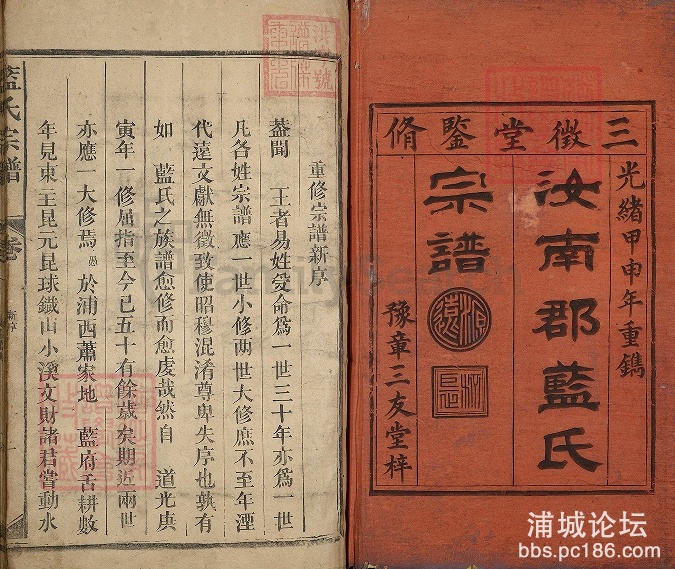 三徵堂鑒脩
光緒甲申年重鐫
汝南郡藍氏
宗譜
豫章三友堂梓
重修宗譜新序
葢聞　王者易姓受命爲一世三十年亦爲一世
凡各姓宗譜應一世小修兩世大修庶不至年湮
代遠文獻無徵致使昭穆混淆尊卑失序也孰有
如　藍氏之族譜愈修而愈虔哉然自　道光庚
寅年一修屈指至今已五十有餘歲矣期近兩世
亦應一大修焉愚於浦西蕭家地　藍府舌耕數
年見東王昆元昆球鐵山小溪文財諸君嘗動水
藍氏宗譜
卷
新序
一
浦城论坛
bbs.pc186.com